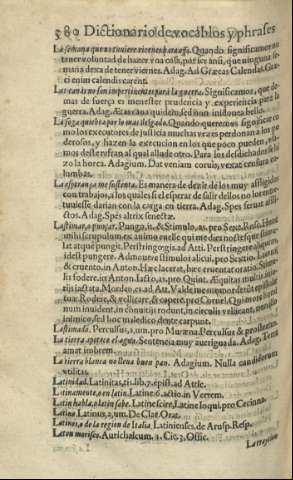 380 Dictionario de vocablos y phrases
La semana que no tuviere viernes para esso. Quando significamos no
tener voluntad de hazer vna cosa, par ser ansi, que ninguna se-
mana dexa de tener viernes. Adag. Ad Græcas Calendas. Græ-
ci enim calendis carent.
Las canas no son impertinentes para la guerra. Significamos, que de-
mas de fuerça es menester prudencia y experiencia para la
guerra. Adag.
La soga quiebra por lo mas delgado. Quando queremos significar co
mo los executores de justicia muchas vezes perdonan a los po
derosos, y hazen la execucion en los que poco pueden,
mos deste refran al qual allude otro. Para los desdichados se hi
zo la horca. Adagium. Dat veniam coruis, vexat censura co-
lumbas.
La esperança me sustenta. Es manera de dezir de los muy affligidos
con trabajos, a los quales si el esperar de salir dellos no los
tuuiesse, darian con la carga en tierra. Adag. Spes seruat affli-
ctos. Adag. Spes altrix senectæ.
Lastimar, punçar. Pungo, is. & Stimulo, as. pro Sext. Rosc.
mihi scrupulum ex animo euelle qui me dies noctesque stimu-
lat atque pungit. Perstringo, gis. ad Atti. Perstringere aliquem,
idest pungere. Admouere stimulos alicui, pro Sextio.
& cruento, in Anton. Hæc lacerat, hæc cruentat oratio.
fodere, in Anton. Iacto, as, pro Quint.
iis iactata. Mordeo, es. ad Att. Valde me momorderunt epistolæ
tuæ. Rodere, & vellicare, & capere, pro Cornel. Qui more
num inuident, in conuiuiis rodunt, in circulis vellicant, non illo
inimico, sed hoc maledico dente carpunt.
Lastimado. Percussus, a, um, pro Muræna. Percussus & prostratus.
La tierra apetece el agua. Sentencia muy aueriguada. Adag. Terra
amat imbrem.
La tierra blanca no llena buen pan. Adagium. Nulla candidorum
vtilitas.
Latinidad. Latinitas, tis. lib. 7. epist. ad Attic.
Latinamente, o en latin. Latine. 6. actio. in Verrem.
Latin habla, o latin sabe. Latine scire, Latine loqui, pro Cecinna.
Latino. Latinus, a, um. De Clar. Orat.
Latino, a de la region de Italia. Latiniensis, de Arusp. Resp.
Laton morisco. Aurichalcum. 2. Cic. 3. Offic.